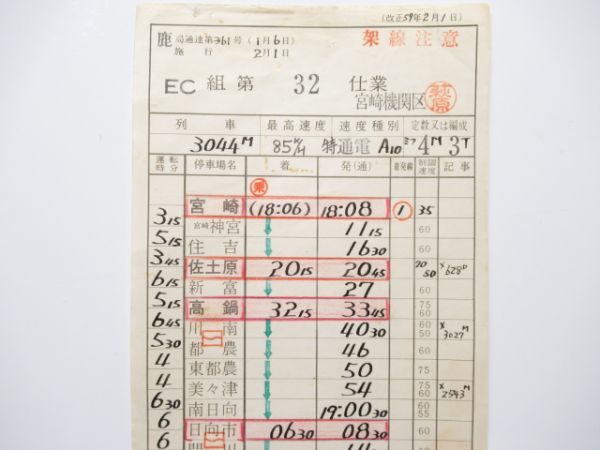 (改正59年2月1日)
鹿 局通達第361号(1月6日) 架線注意
施行 2月1日
EC 組第 32 仕業
宮崎機関区 萩原
列車 最高速度 速度種別 定数又は編成
3044M 85K/H 特通電 A10 4M 3T
運転時分 停車場名 着 発(通) 着発線 制限速度 記事
乗
宮崎 (18:06) 18:08 1 35
3 15 宮崎神宮 11 15 60
5 15 住吉 16 30 60
3 45 佐土原 20 15 20 45 70 50 ×628D
6 15 新富 27 60
5 15 高鍋 32 15 33 45 75 60
6 45 川南 40 30 60 60 ×3027M
5 30 都農 46 60
4 東都農 50 75
4 美々津 54 60 ×2543M
6 30 南日向 19:00 30 60 55
6 日向市 06 30 08 30 60
6